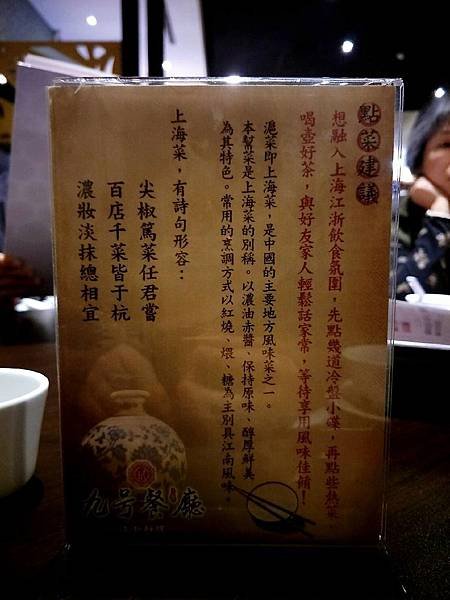 點菜建議
想融入上海江浙飲食氛圍，先點幾道冷盤小碟，再點些熱菜
喝壺好茶，與好友家人輕鬆話家常，等待享用風味佳餚！
滬菜即上海菜，是中國的主要地方風味菜之一。
本幫菜是上海菜的別稱。以濃油赤醬、保持原味、醇厚鮮美
為其特色。常用的烹調方式以紅燒、煨、糖為主別具江南風味。
上海菜，有詩句形容：
尖椒篤菜任君嘗
百店千菜皆于杭
濃妝淡抹總相宜
九号餐廳